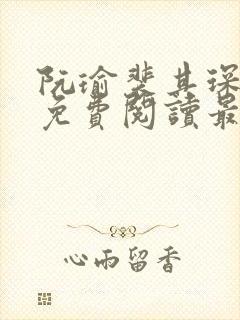 阮瑜裴其琛
免費閱讀最
心雨留香